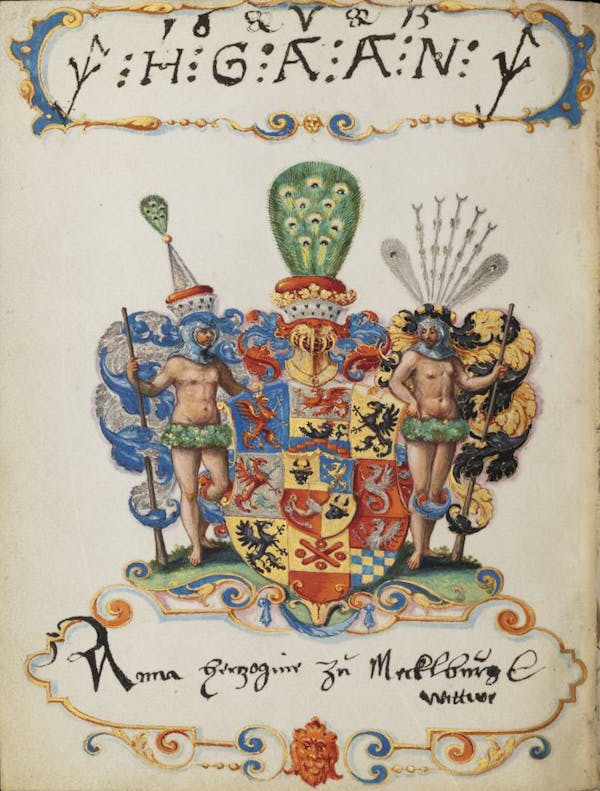 16 V 15
:H:G:A:A:N:
Anna herzogine zů Mecklbůrg
Wittwe